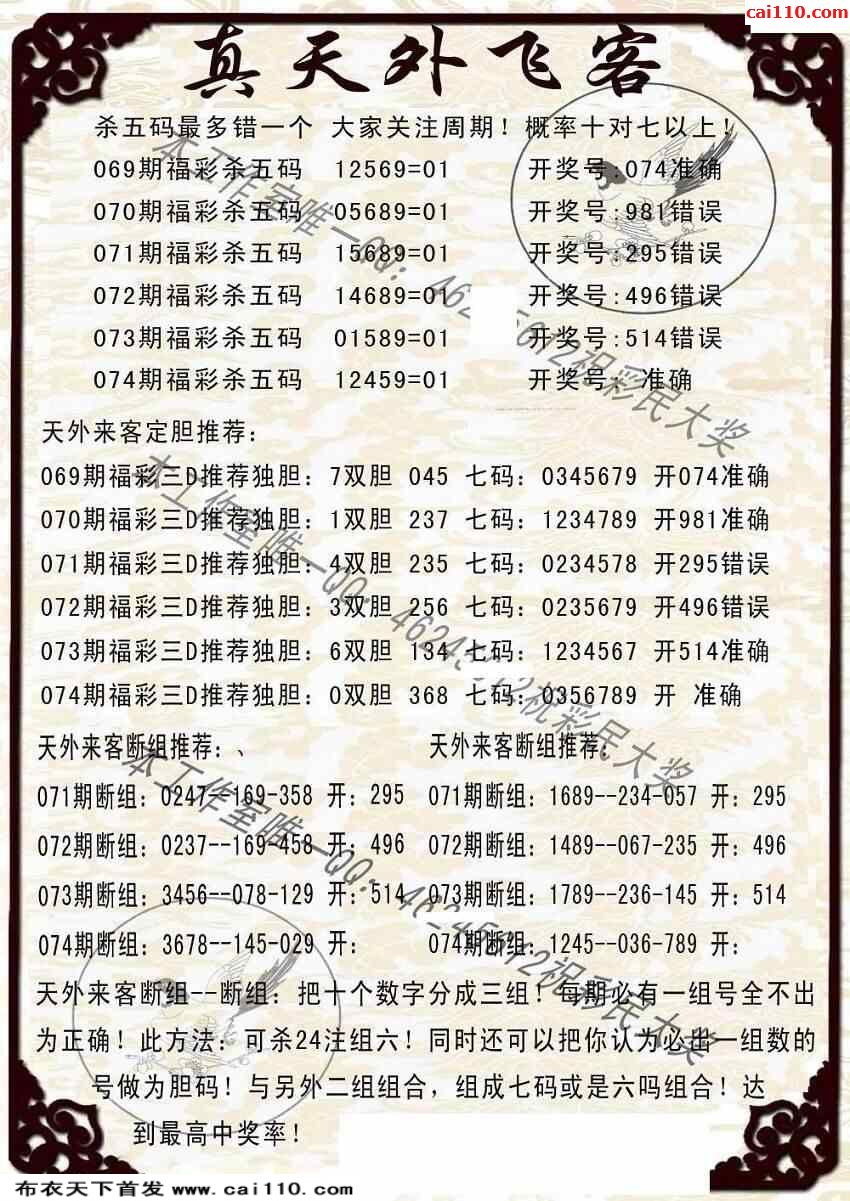 cai110.com
真天外飞客
杀五码最多错一个 大家关注周期！概率十对七以上！
069期福彩杀五码 12569=01 开奖号:074准确
070期福彩杀五码 05689=01 开奖号:981错误
071期福彩杀五码 15689=01 开奖号:295错误
072期福彩杀五码 14689=01 开奖号:496错误
073期福彩杀五码 01589=01 开奖号:514错误
074期福彩杀五码 12459=01 开奖号: 准确
天外来客定胆推荐：
069期福彩三D推荐独胆：7双胆 045 七码：0345679 开074准确
070期福彩三D推荐独胆：1双胆 237 七码：1234789 开981准确
071期福彩三D推荐独胆：4双胆 235 七码：0234578 开295错误
072期福彩三D推荐独胆：3双胆 256 七码：0235679 开496错误
073期福彩三D推荐独胆：6双胆 134 七码：1234567 开514准确
074期福彩三D推荐独胆：0双胆 368 七码：0356789 开 准确
天外来客断组推荐：、 天外来客断组推荐：
071期断组：0247--169-358 开：295 071期断组：1689--234-057 开：295
072期断组：0237--169-458 开：496 072期断组：1489--067-235 开：496
073期断组：3456--078-129 开：514 073期断组：1789--236-145 开：514
074期断组：3678--145-029 开： 074期断组：1245--036-789 开：
天外来客断组--断组：把十个数字分成三组！每期必有一组号全不出
为正确！此方法：可杀24注组六！同时还可以把你认为必出一组数的
号做为胆码！与另外二组组合，组成七码或是六吗组合！达
到最高中奖率！
本工作室唯一QQ：46245612祝彩民大奖
本工作室唯一QQ：46245612祝彩民大奖
本工作室唯一QQ：46245612祝彩民大奖
布衣天下首发 www.cai110.com